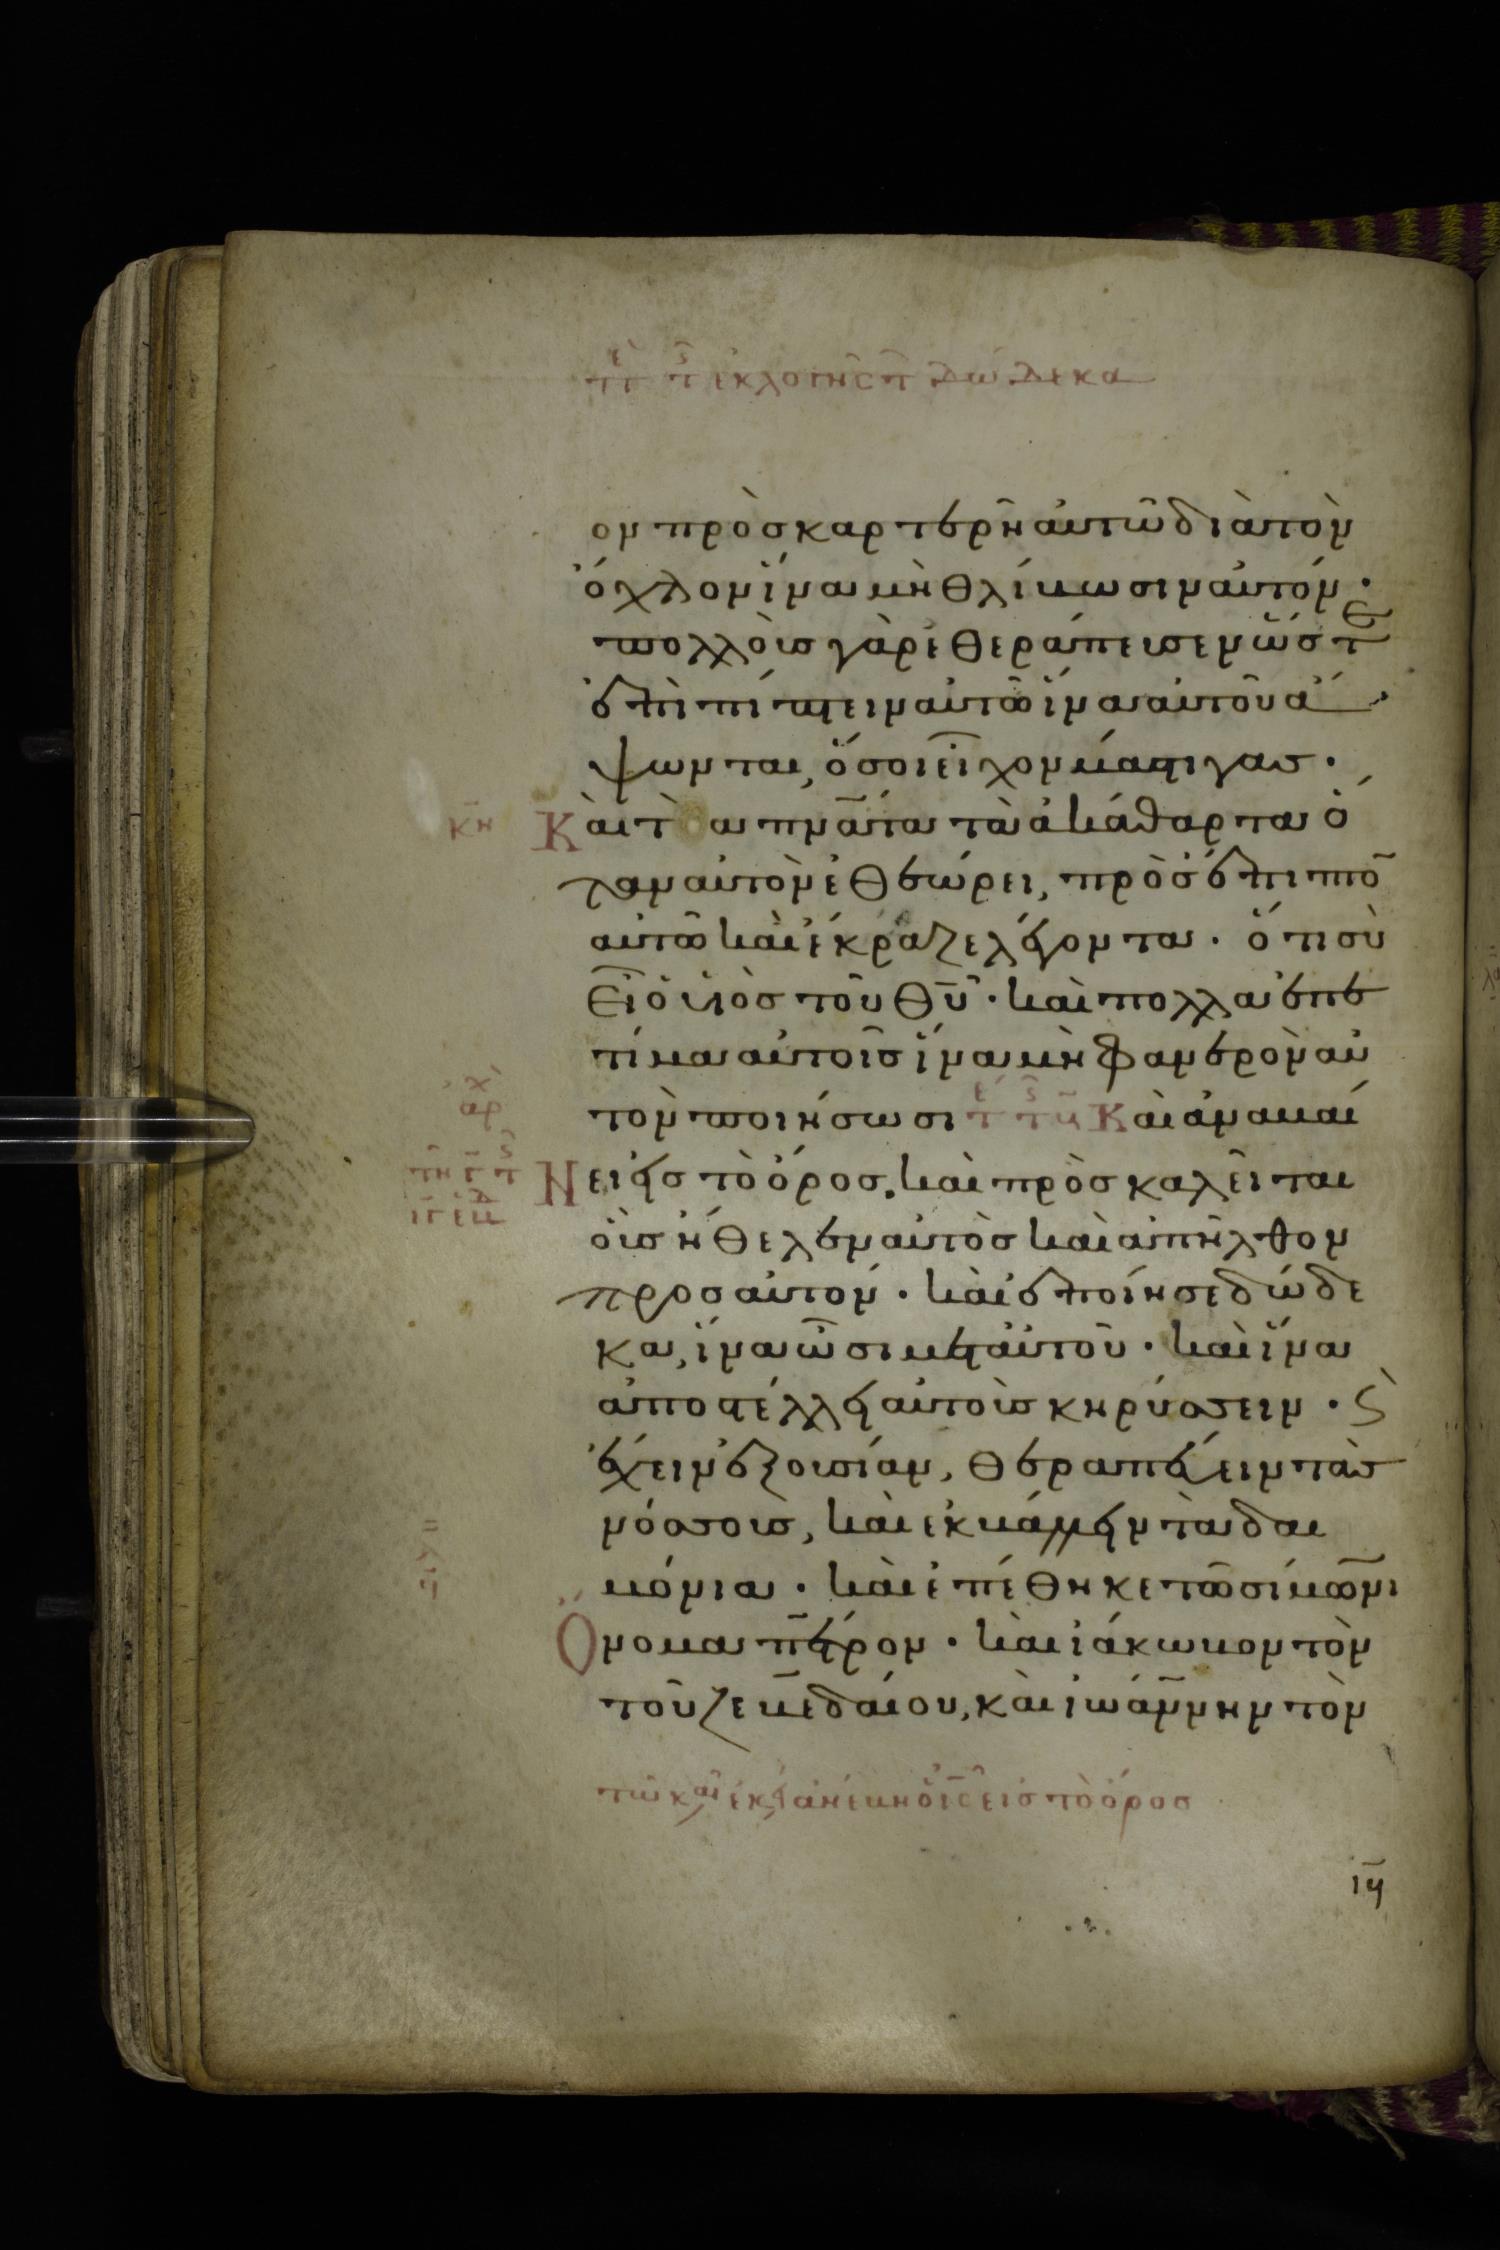 ον πρὸσκαρτερῆ αὐτῶ διὰ τὸν
ὄχλον ἵνα μὴ θλίβωσιν αὐτόν·
πολλοὺσ γὰρ ἐθεράπευσεν ὥστε
ἐπιπίπτειν αὐτῶ ἵνα αὐτοῦ ἅ
ψωνται, ὅσοι εἶχον μάστιγασ·
κη Καὶ τ α πνᾱτα τὰ ἀκάθαρτα ὅ
ταν αὐτὸν ἐθεώρει, πρὸσέπιπτο
αὐτῶ καὶ ἔκραζε λέγοντα· ὅτι σὺ
εἶ ὁ υἱὸσ τοῦ θῡ· καὶ πολλὰ ἐπε
τίμα αὐτοῖσ ἵνα μὴ φανερὸν αὐ
τὸν ποιήσωσι Καὶ ἀναβαί
Νει εἰσ τὸ ὄροσ. καὶ πρὸσκαλεῖται
οὓσ ἤθελεν αὐτὸσ καὶ ἀπῆλθον
προσ αὐτον· καὶ ἐποίησε δώδε
κα, ἵνα ὦσι μετ αὐτοῦ· καὶ ἵνα
ἀποστέλλη αὐτοὺσ κηρύσσειν· ϛ
ἔχειν ἐξουσίαν, θεραπεύειν τὰσ
νόσουσ, καὶ ἐκβάλλειν τὰ δαι
μόνια· καὶ ἐπέθηκε τῶ σίμωνι
Ὄνομα πέτρον· καὶ ἰάκωβον τὸν
τοῦ ζεβεδαίου, καὶ ἰωάννην τὸν